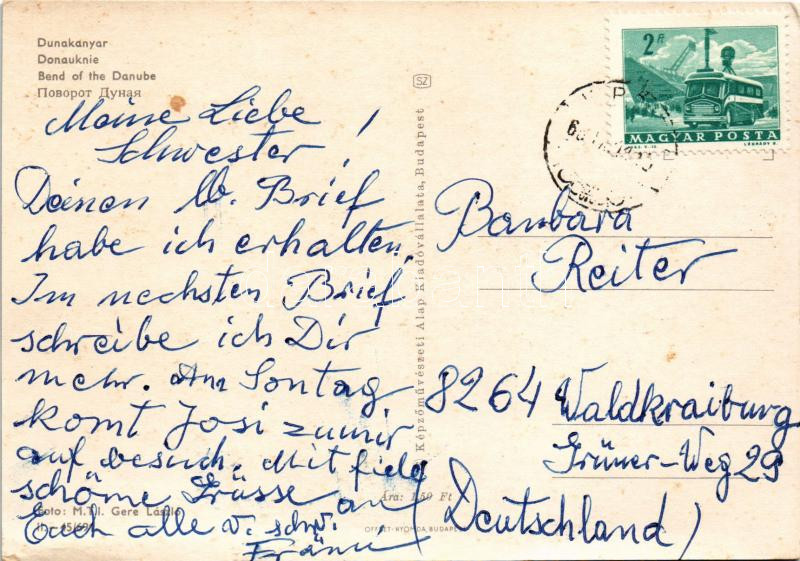 Dunakanyar
Donauknie
Bend of the Danube
Поворот Дуная
Meine Liebe
Schwester!
Deinen lb. Brief
habe ich erhalten.
Im nechsten Brief
schreibe ich Dir
mehr. Am Sontag
komt Josi zu mir
auf besuch. Mit fiele
schöme Grüsse an
Euch alle v. schw.
Foto: M.T.I. Gere László
SZ
Képzőművészeti Alap Kiadóvállalata, Budapest
Ára: 1,50 Ft
OFFSET-NYOMDA, BUDAPEST
2 Ft
MAGYAR POSTA
LÉGRÁDY S.
Barbara
Reiter
8264 Waldkraiburg
Grüner-Weg 29
(Deutschland)